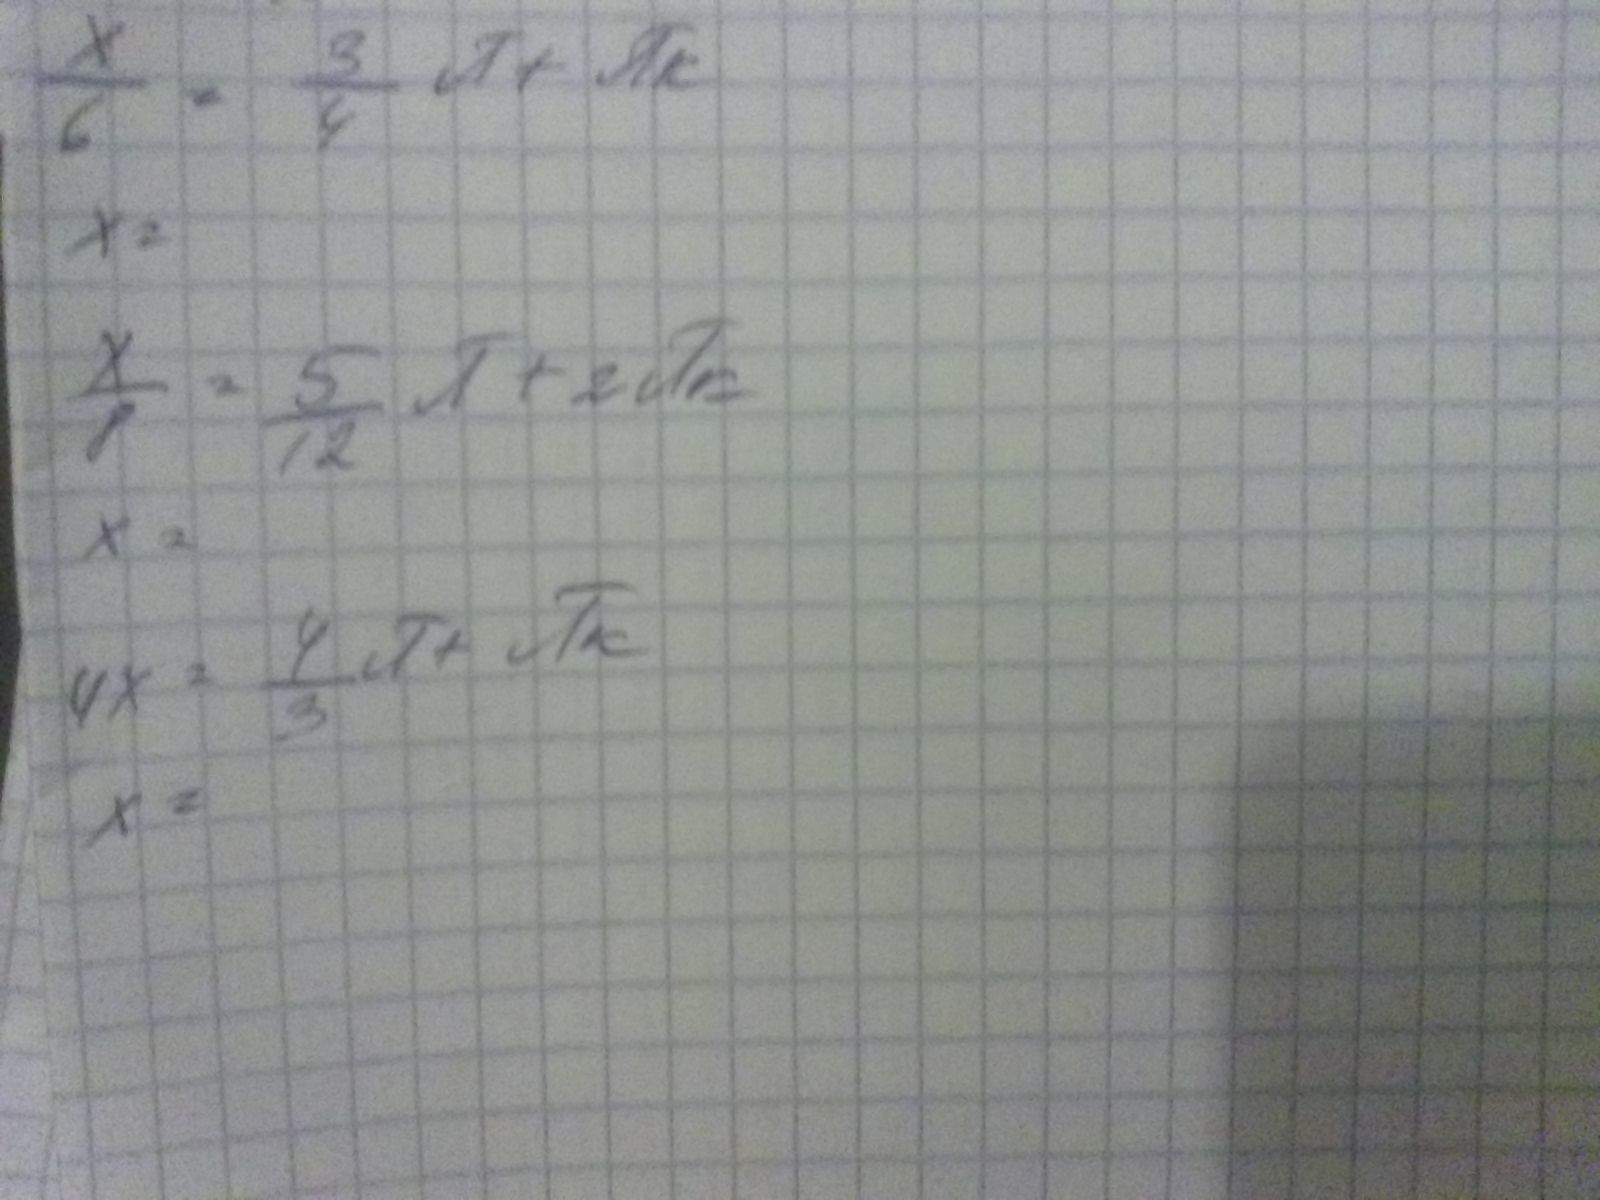 x/6 = 3/4 π + πk
x =
x/8 = 5/12 π + 2πk
x =
4x = 4/3 π + πk
x =